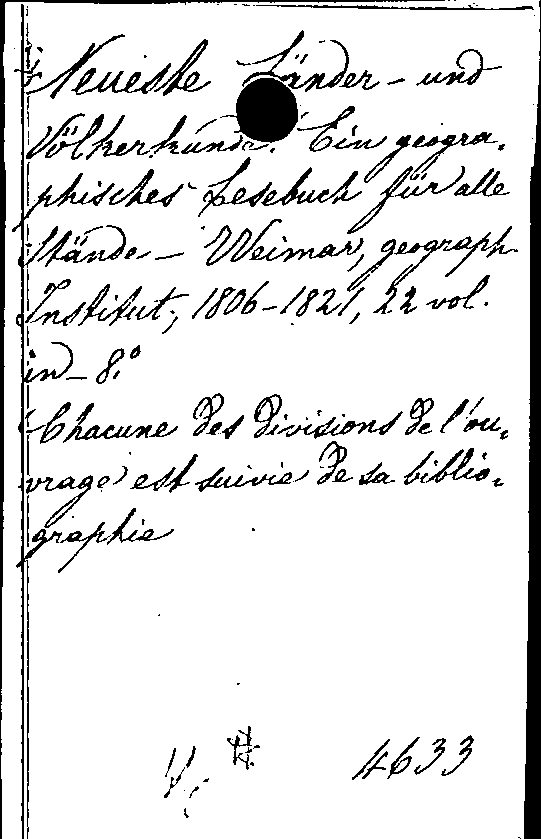 Neueste Länder - und
Völkerkunde. Ein geogra-
phisches Lesebuch für alle
Stände - Weimar, geograph-
Institut, 1806-1821, 22 vol.
in - 8.°
Chacune des divisions de l'ou-
vrage est suivie de sa biblio-
graphie
4633